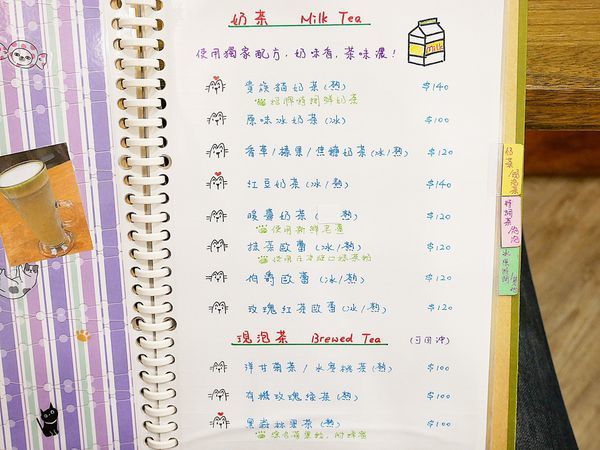 奶茶 Milk Tea
使用獨家配方，奶味香，茶味濃！
milk
貴族貓奶茶(熱) $140
招牌特調鮮奶茶
原味冰奶茶(冰) $100
香草/榛果/焦糖奶茶(冰/熱) $120
紅豆奶茶(冰/熱) $140
暖薑奶茶( 熱) $120
使用新鮮老薑
抹茶歐蕾(冰/熱) $120
使用日本進口抹茶粉
伯爵歐蕾(冰/熱) $120
玫瑰紅茶歐蕾(冰/熱) $120
現泡茶 Brewed Tea (可回沖)
洋甘菊茶/水蜜桃茶(熱) $100
有機玫瑰花茶(熱) $100
黑森林果茶(熱) $100